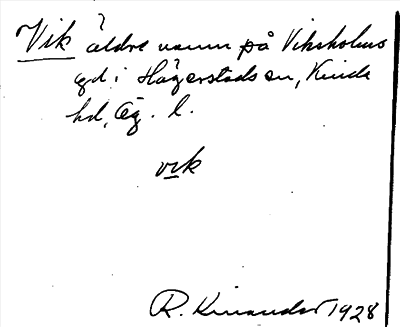 Vik äldre namn på Viksholms
gd i Hägerstads sn, Kinda
hd, Ög. l.
vik
R. Kinander 1928